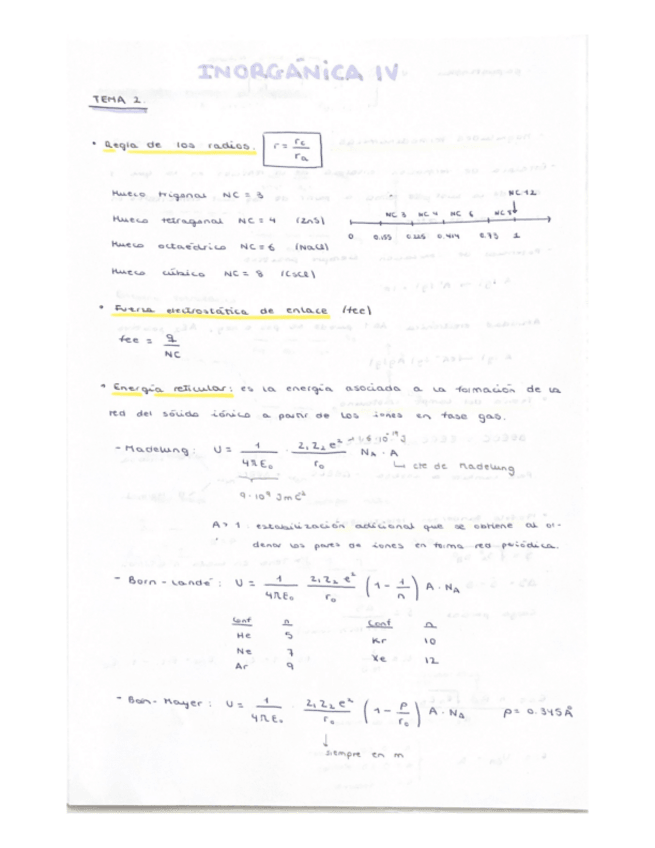 INORGÁNICA IV
TEMA 2.
• Regla de los radios. r = rc / ra
Hueco trigonal NC = 3
NC 12
Hueco tetragonal NC = 4 (ZnS)
NC 3 NC 4 NC 6 NC 8
0 0.155 0.225 0.414 0.73 1
Hueco octaédrico NC = 6 (NaCl)
Hueco cúbico NC = 8 (CsCl)
• Fuerza electrostática de enlace (fee)
fee = q / NC
• Energía reticular: es la energía asociada a la formación de la
red del sólido iónico a partir de los iones en fase gas.
- Madelung: U = 1 / 4πE₀ · Z₁Z₂e² / r₀ NA · A
cte de Madelung
9·10⁹ JmC⁻²
A > 1 estabilización adicional que se obtiene al or-
denar los pares de iones en forma red periódica.
- Born-Landé: U = 1 / 4πE₀ Z₁Z₂e² / r₀ (1 - 1/n) A · NA
Conf n Conf n
He 5 Kr 10
Ne 7 Xe 12
Ar 9
- Born-Mayer: U = 1 / 4πE₀ · Z₁Z₂e² / r₀ (1 - ρ/r₀) A · NA ρ = 0.345Å
siempre en m